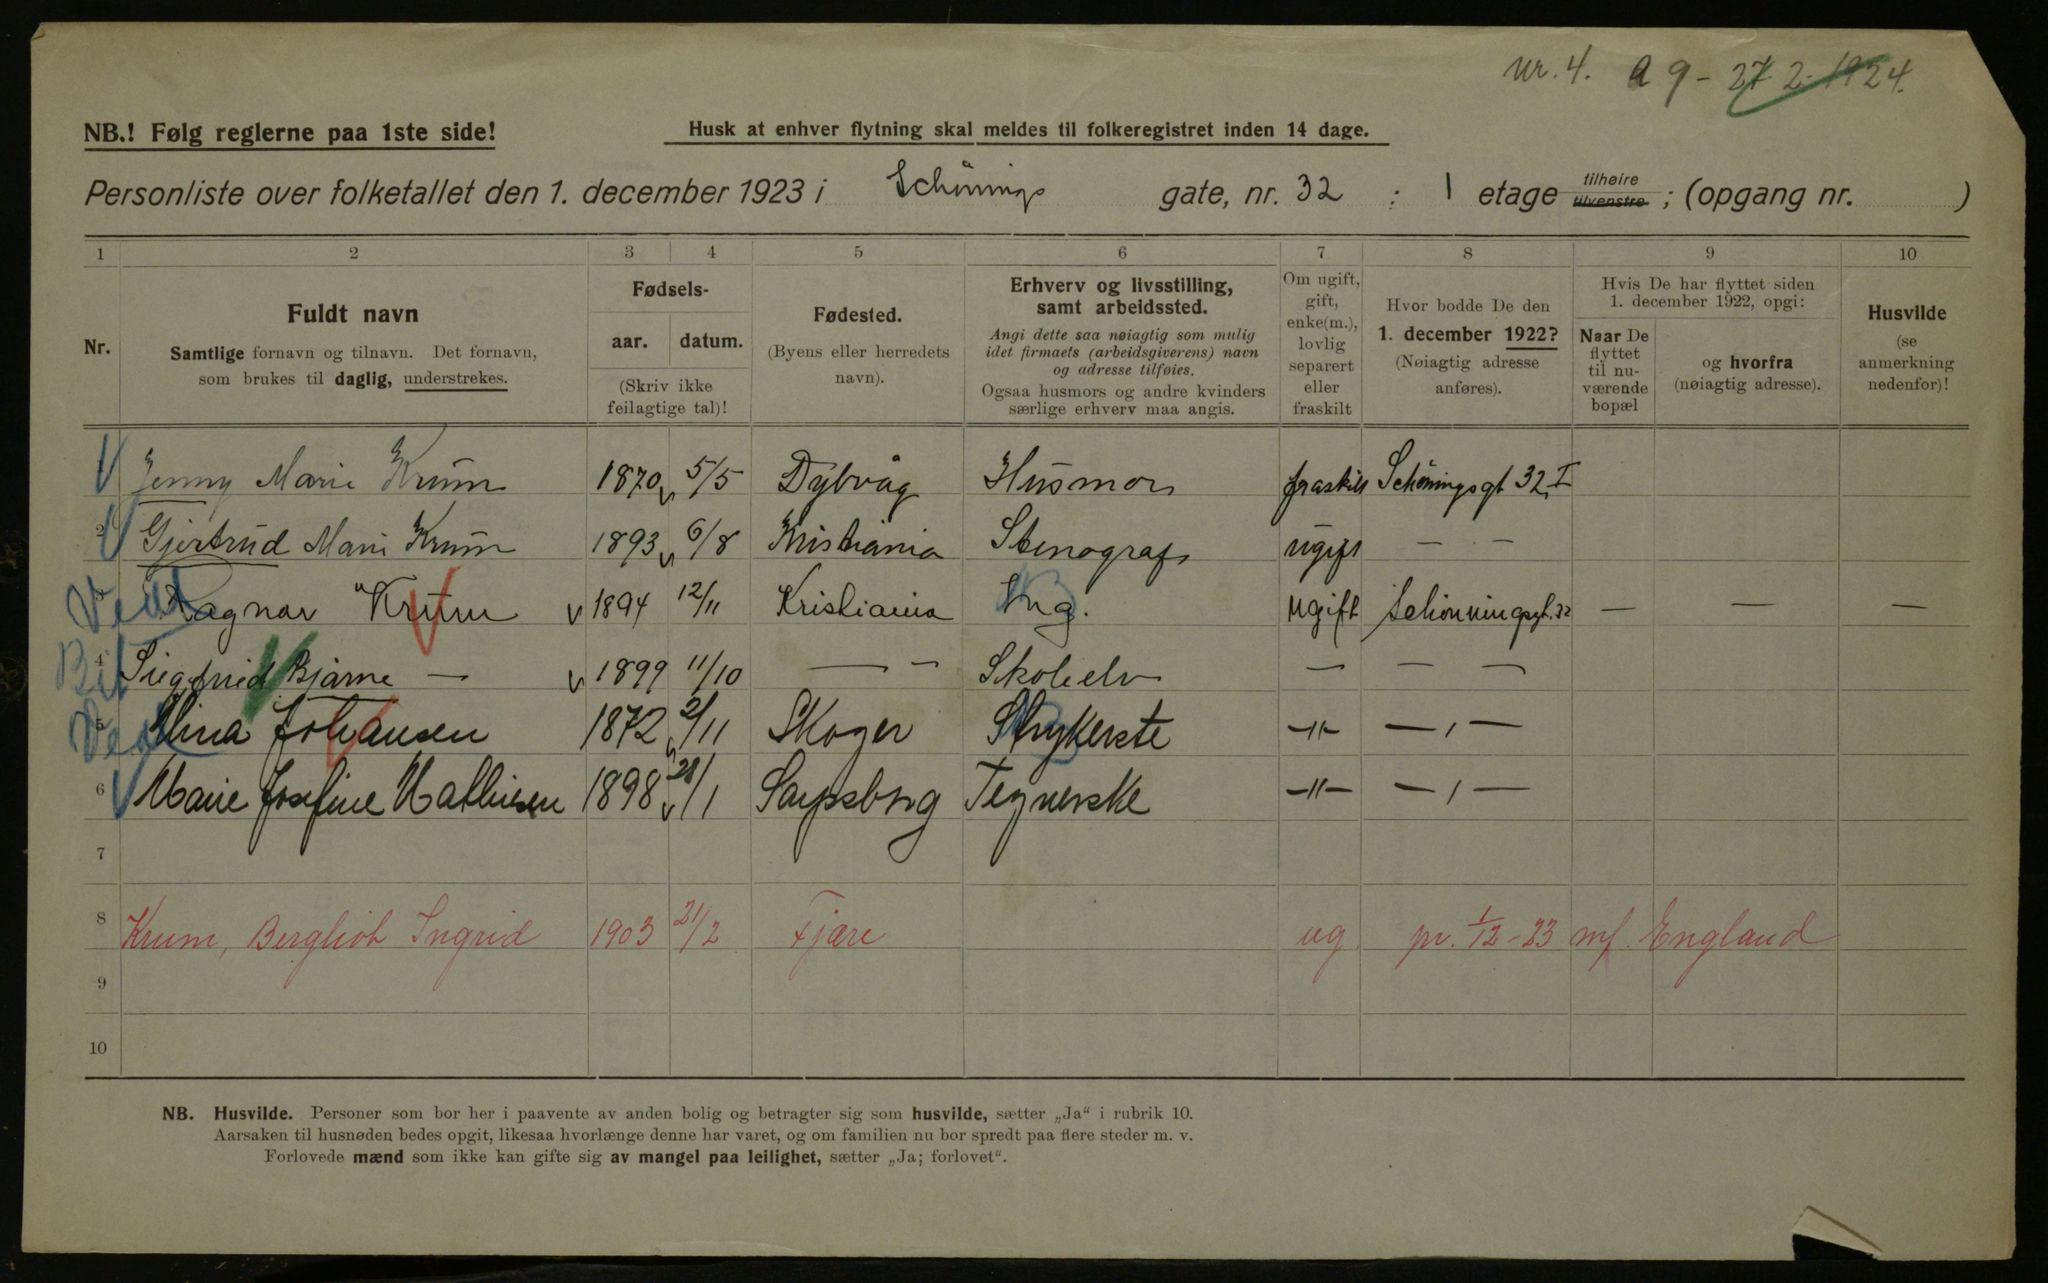 nr. 4. a 9 - 27-2-1924.
NB.! Følg reglerne paa 1ste side!
Husk at enhver flytning skal meldes til folkeregistret inden 14 dage.
Personliste over folketallet den 1. december 1923 i Schønings gate, nr. 32 : 1 etage tilhøire tilvenstre ; (opgang nr. )
1 2 3 4 5 6 7 8 9 10
Nr.
Fuldt navn
Samtlige fornavn og tilnavn. Det fornavn,
som brukes til daglig, understrekes.
Fødsels-
aar. datum.
(Skriv ikke
feilagtige tal)!
Fødested.
(Byens eller herredets
navn).
Erhverv og livsstilling,
samt arbeidssted.
Angi dette saa nøiagtig som mulig
idet firmaets (arbeidsgiverens) navn
og adresse tilføies.
Ogsaa husmors og andre kvinders
særlige erhverv maa angis.
Om ugift,
gift,
enke(m.),
lovlig
separert
eller
fraskilt
Hvor bodde De den
1. december 1922?
(Nøiagtig adresse
anføres).
Hvis De har flyttet siden
1. december 1922, opgi:
Naar De
flyttet
til nu-
værende
bopæl
og hvorfra
(nøiagtig adresse).
Husvilde
(se
anmerkning
nedenfor)!
Jenny Marie Krum 1870 5/5 Dybvåg Husmor fraskilt Schøningsgt 32 I
2 Gjertrud Marie Krum 1893 6/8 Kristiania Stenograf ugift — —
3 Ragnar Krum 1894 12/11 Kristiania Ing. ugift Schønningsgt. 32 — — —
4 Siegfried Bjarne — 1899 11/10 — — Skoleelv — — —
5 Mina Johansen 1872 2/11 Skoger Strykerste —"— — , —
6 Marie Josefine Mathiesen 1898 28/1 Sarpsborg Tegnerske —"— — , —
7
8 Krum, Bergliot Ingrid 1903 21/2 Fjære ug pr. 1/12-23 mf. England
9
10
NB. Husvilde. Personer som bor her i paavente av anden bolig og betragter sig som husvilde, sætter „Ja“ i rubrik 10.
Aarsaken til husnøden bedes opgit, likesaa hvorlænge denne har varet, og om familien nu bor spredt paa flere steder m. v.
Forlovede mænd som ikke kan gifte sig av mangel paa leilighet, sætter „Ja; forlovet“.